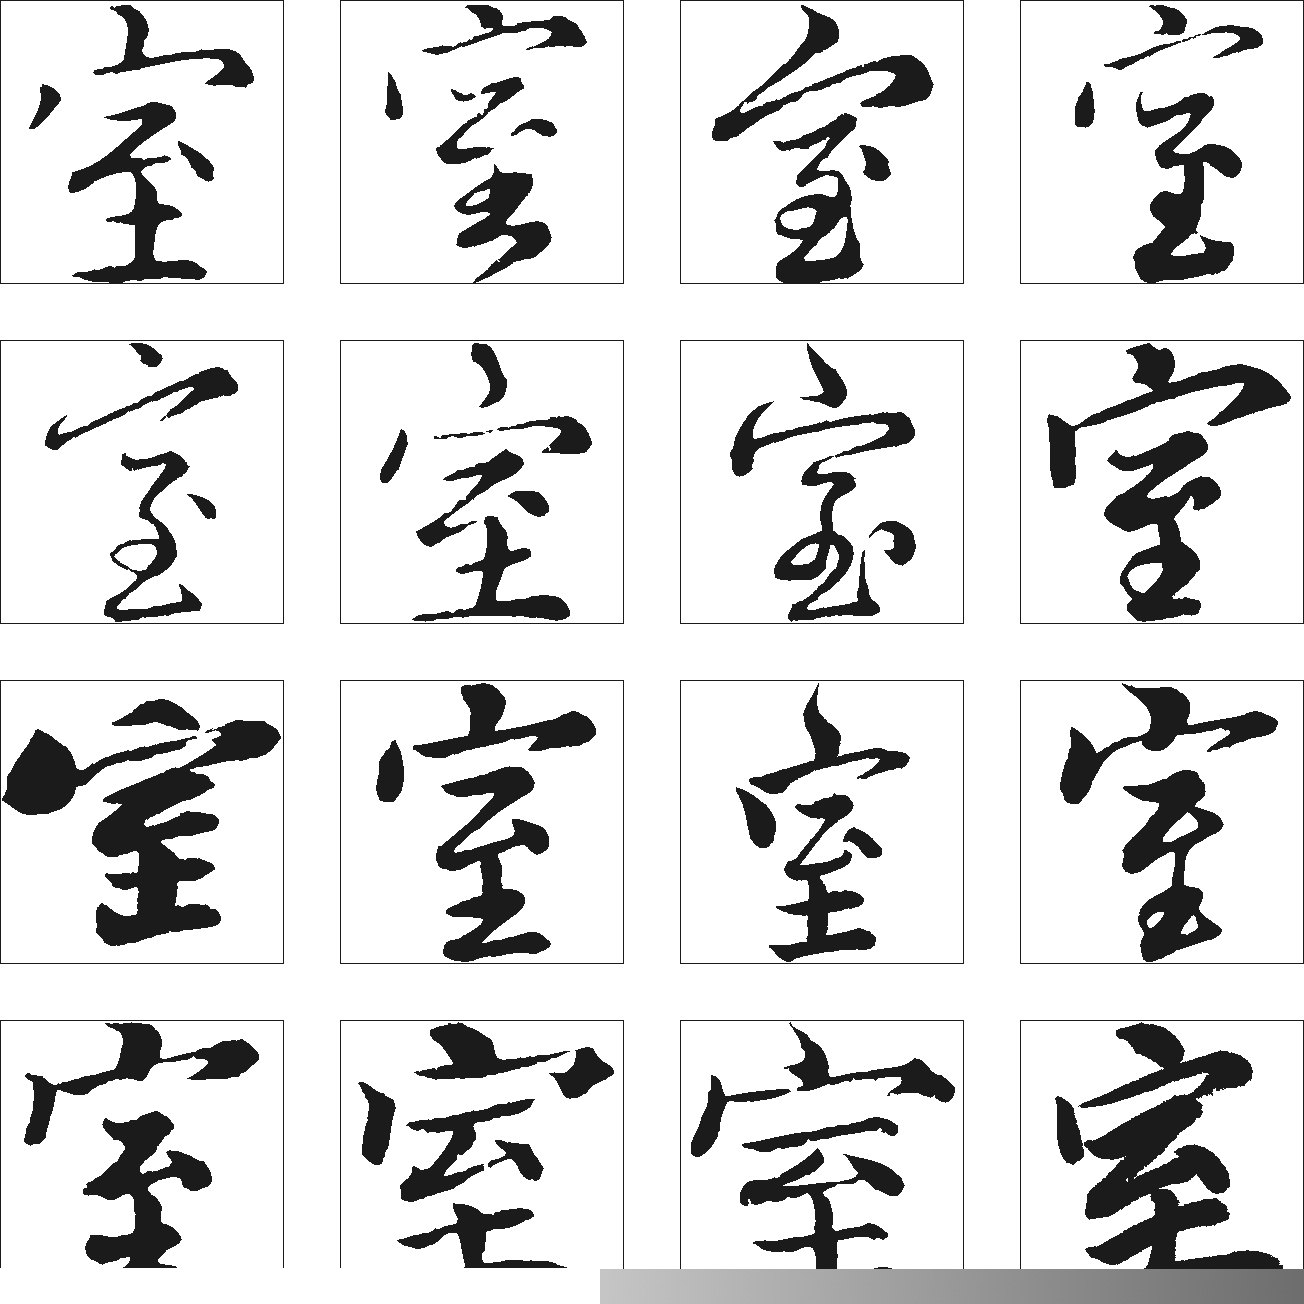 室 室 室 室
室 室 室 室
室 室 室 室
室 室 室 室